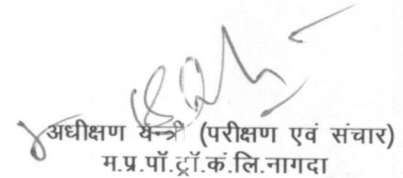 अधीक्षण यन्त्री (परीक्षण एवं संचार)
म.प्र.पॉ.ट्रॉ.कं.लि.नागदा